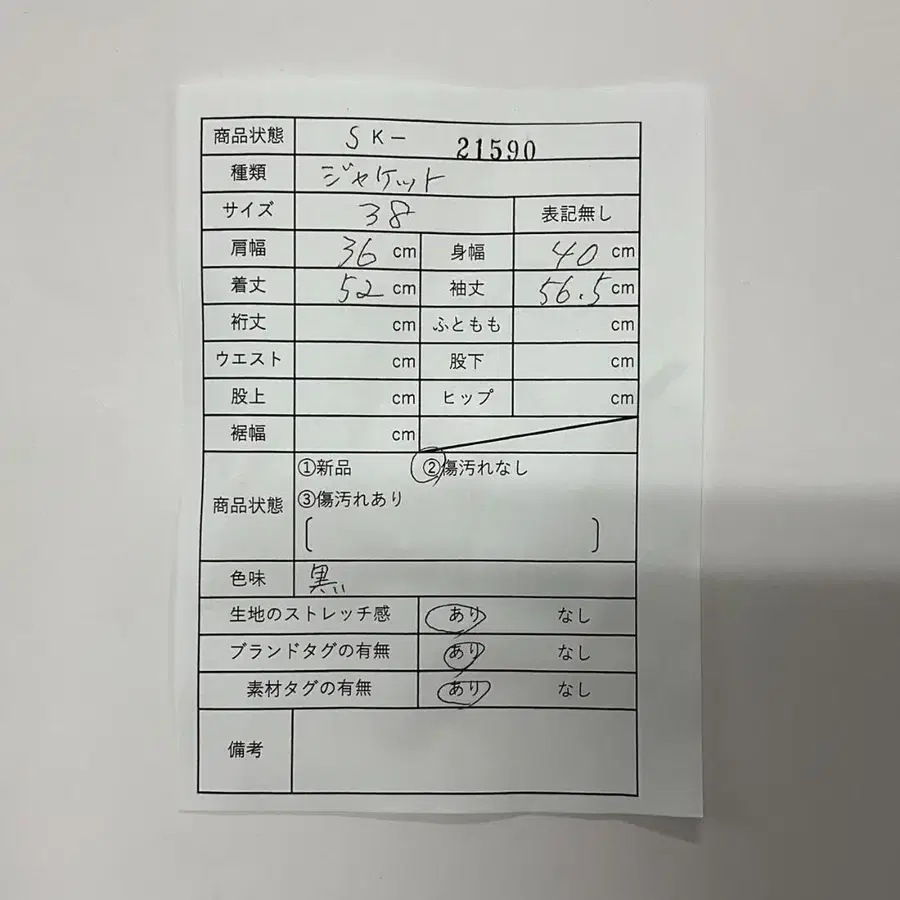 商品状態 SK- 21590
種類 ジャケット
サイズ 38 表記無し
肩幅 36 cm 身幅 40 cm
着丈 52 cm 袖丈 56.5 cm
裄丈 cm ふともも cm
ウエスト cm 股下 cm
股上 cm ヒップ cm
裾幅 cm
商品状態 ①新品 ②傷汚れなし
③傷汚れあり
[ ]
色味 黒
生地のストレッチ感 あり なし
ブランドタグの有無 あり なし
素材タグの有無 あり なし
備考